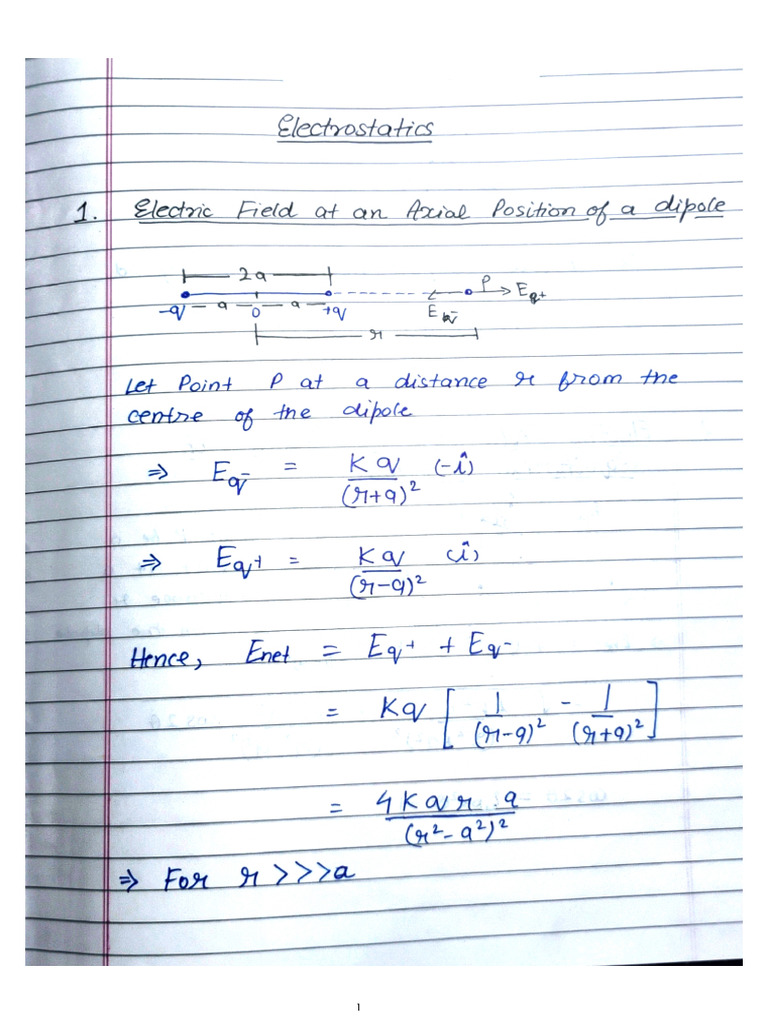 Electrostatics
1. Electric Field at an Axial Position of a dipole
2a
P E_q+
-q a 0 a +q E_q-
r
Let Point P at a distance r from the
centre of the dipole
⇒ E_q- = Kq/(r+a)² (-î)
⇒ E_q+ = Kq/(r-a)² (î)
Hence, Enet = E_q+ + E_q-
= Kq [ 1/(r-a)² - 1/(r+a)² ]
= 4Kqr a/(r²-a²)²
⇒ For r>>>a
1